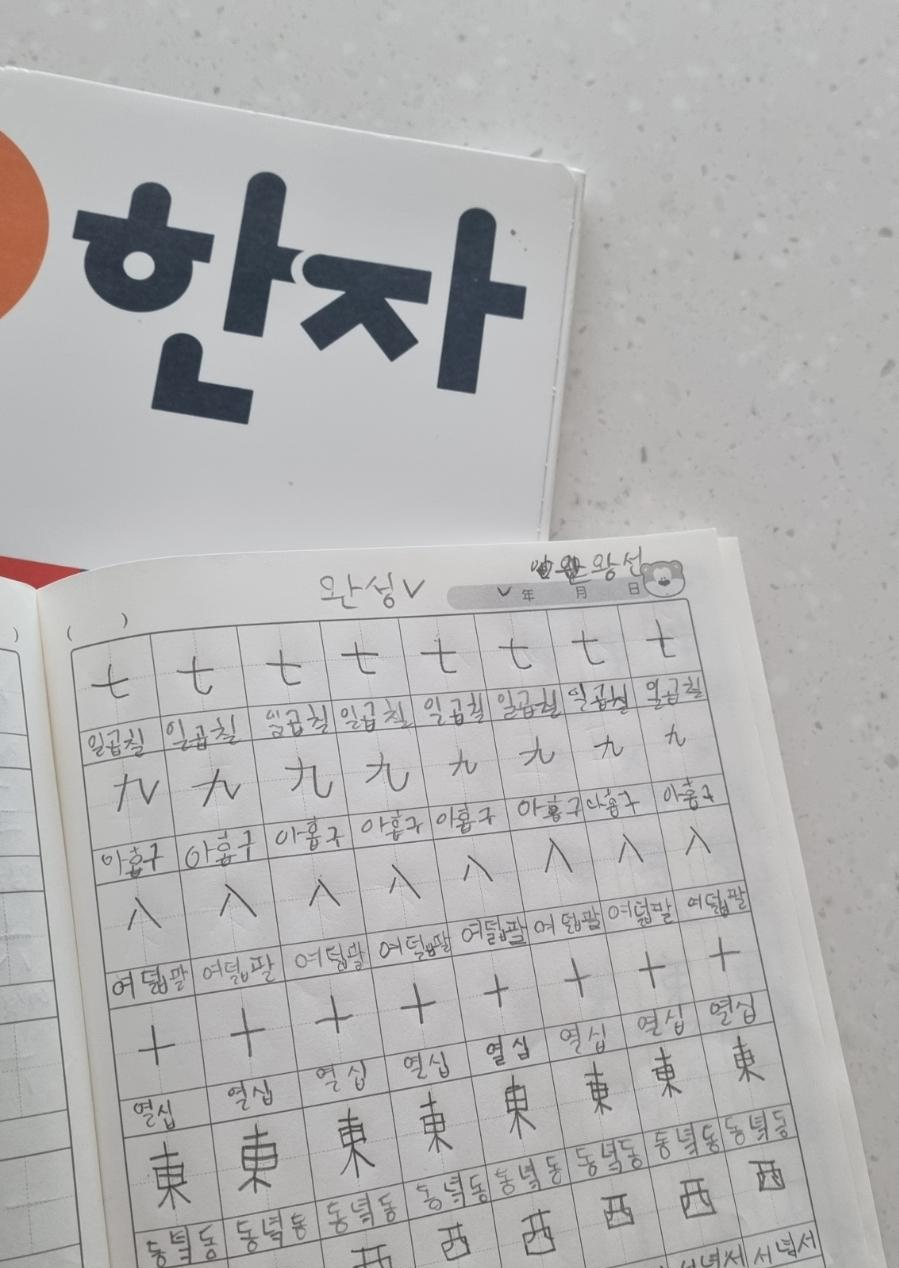 한자
완성✓ 年 月 日 왕선
( )
七 七 七 七 七 七 七 七
일곱칠 일곱칠 일곱칠 일곱칠 일곱칠 일곱칠 일곱칠 일곱칠
九 九 九 九 九 九 九 九
아홉구 아홉구 아홉구 아홉구 아홉구 아홉구 아홉구 아홉구
八 八 八 八 八 八 八 八
여덟팔 여덟팔 여덟팔 여덟팔 여덟팔 여덟팔 여덟팔 여덟팔
十 十 十 十 十 十 十 十
열십 열십 열십 열십 열십 열십 열십 열십
東 東 東 東 東 東 東 東
동녘동 동녘동 동녘동 동녘동 동녘동 동녘동 동녘동 동녘동
西 西 西 西 西 西
서녘서 서녘서